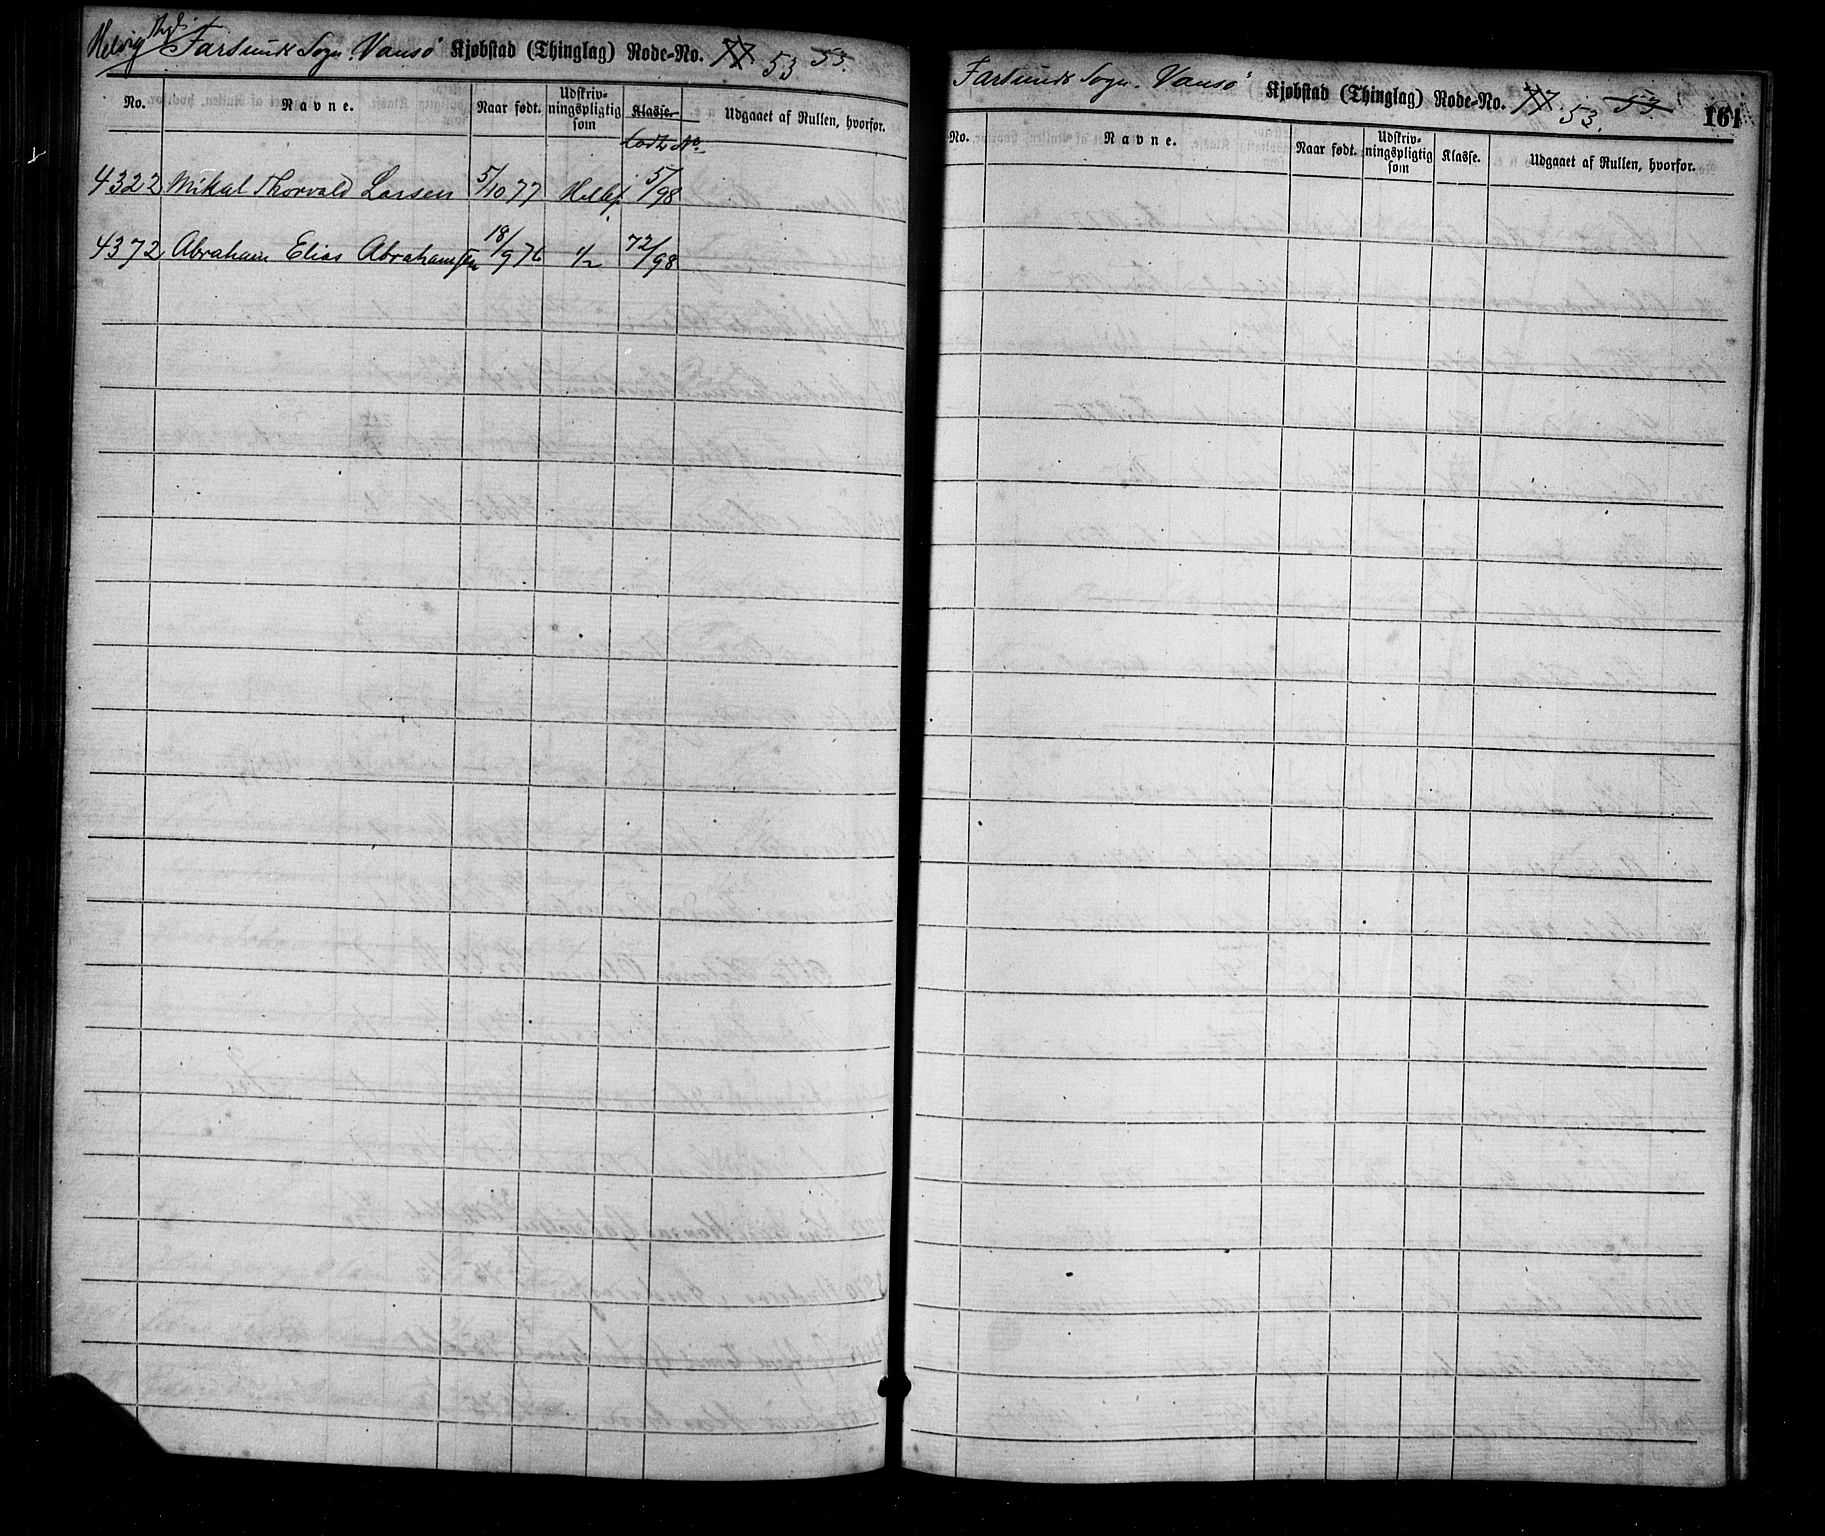 Helvig Thgl. Farsunds Sogn. Vansö Kjøbstad (Thinglag) Rode-No. 77 53 55.
No. Navne. Naar født. Udskrivningspligtig som Klasse. Udgaaet af Rullen, hvorfor.
Lodtr. No.
4322 Mikal Thorvald Larsen 5/10 77 Helbf. 5/98
4372 Abraham Elias Abrahamsen 18/9 76 1/2 72/98
Farsunds Sogn. Vansö Kjøbstad (Thinglag) Rode-No. 77 53. 55. 161
No. Navne. Naar født. Udskrivningspligtig som Klasse. Udgaaet af Rullen, hvorfor.